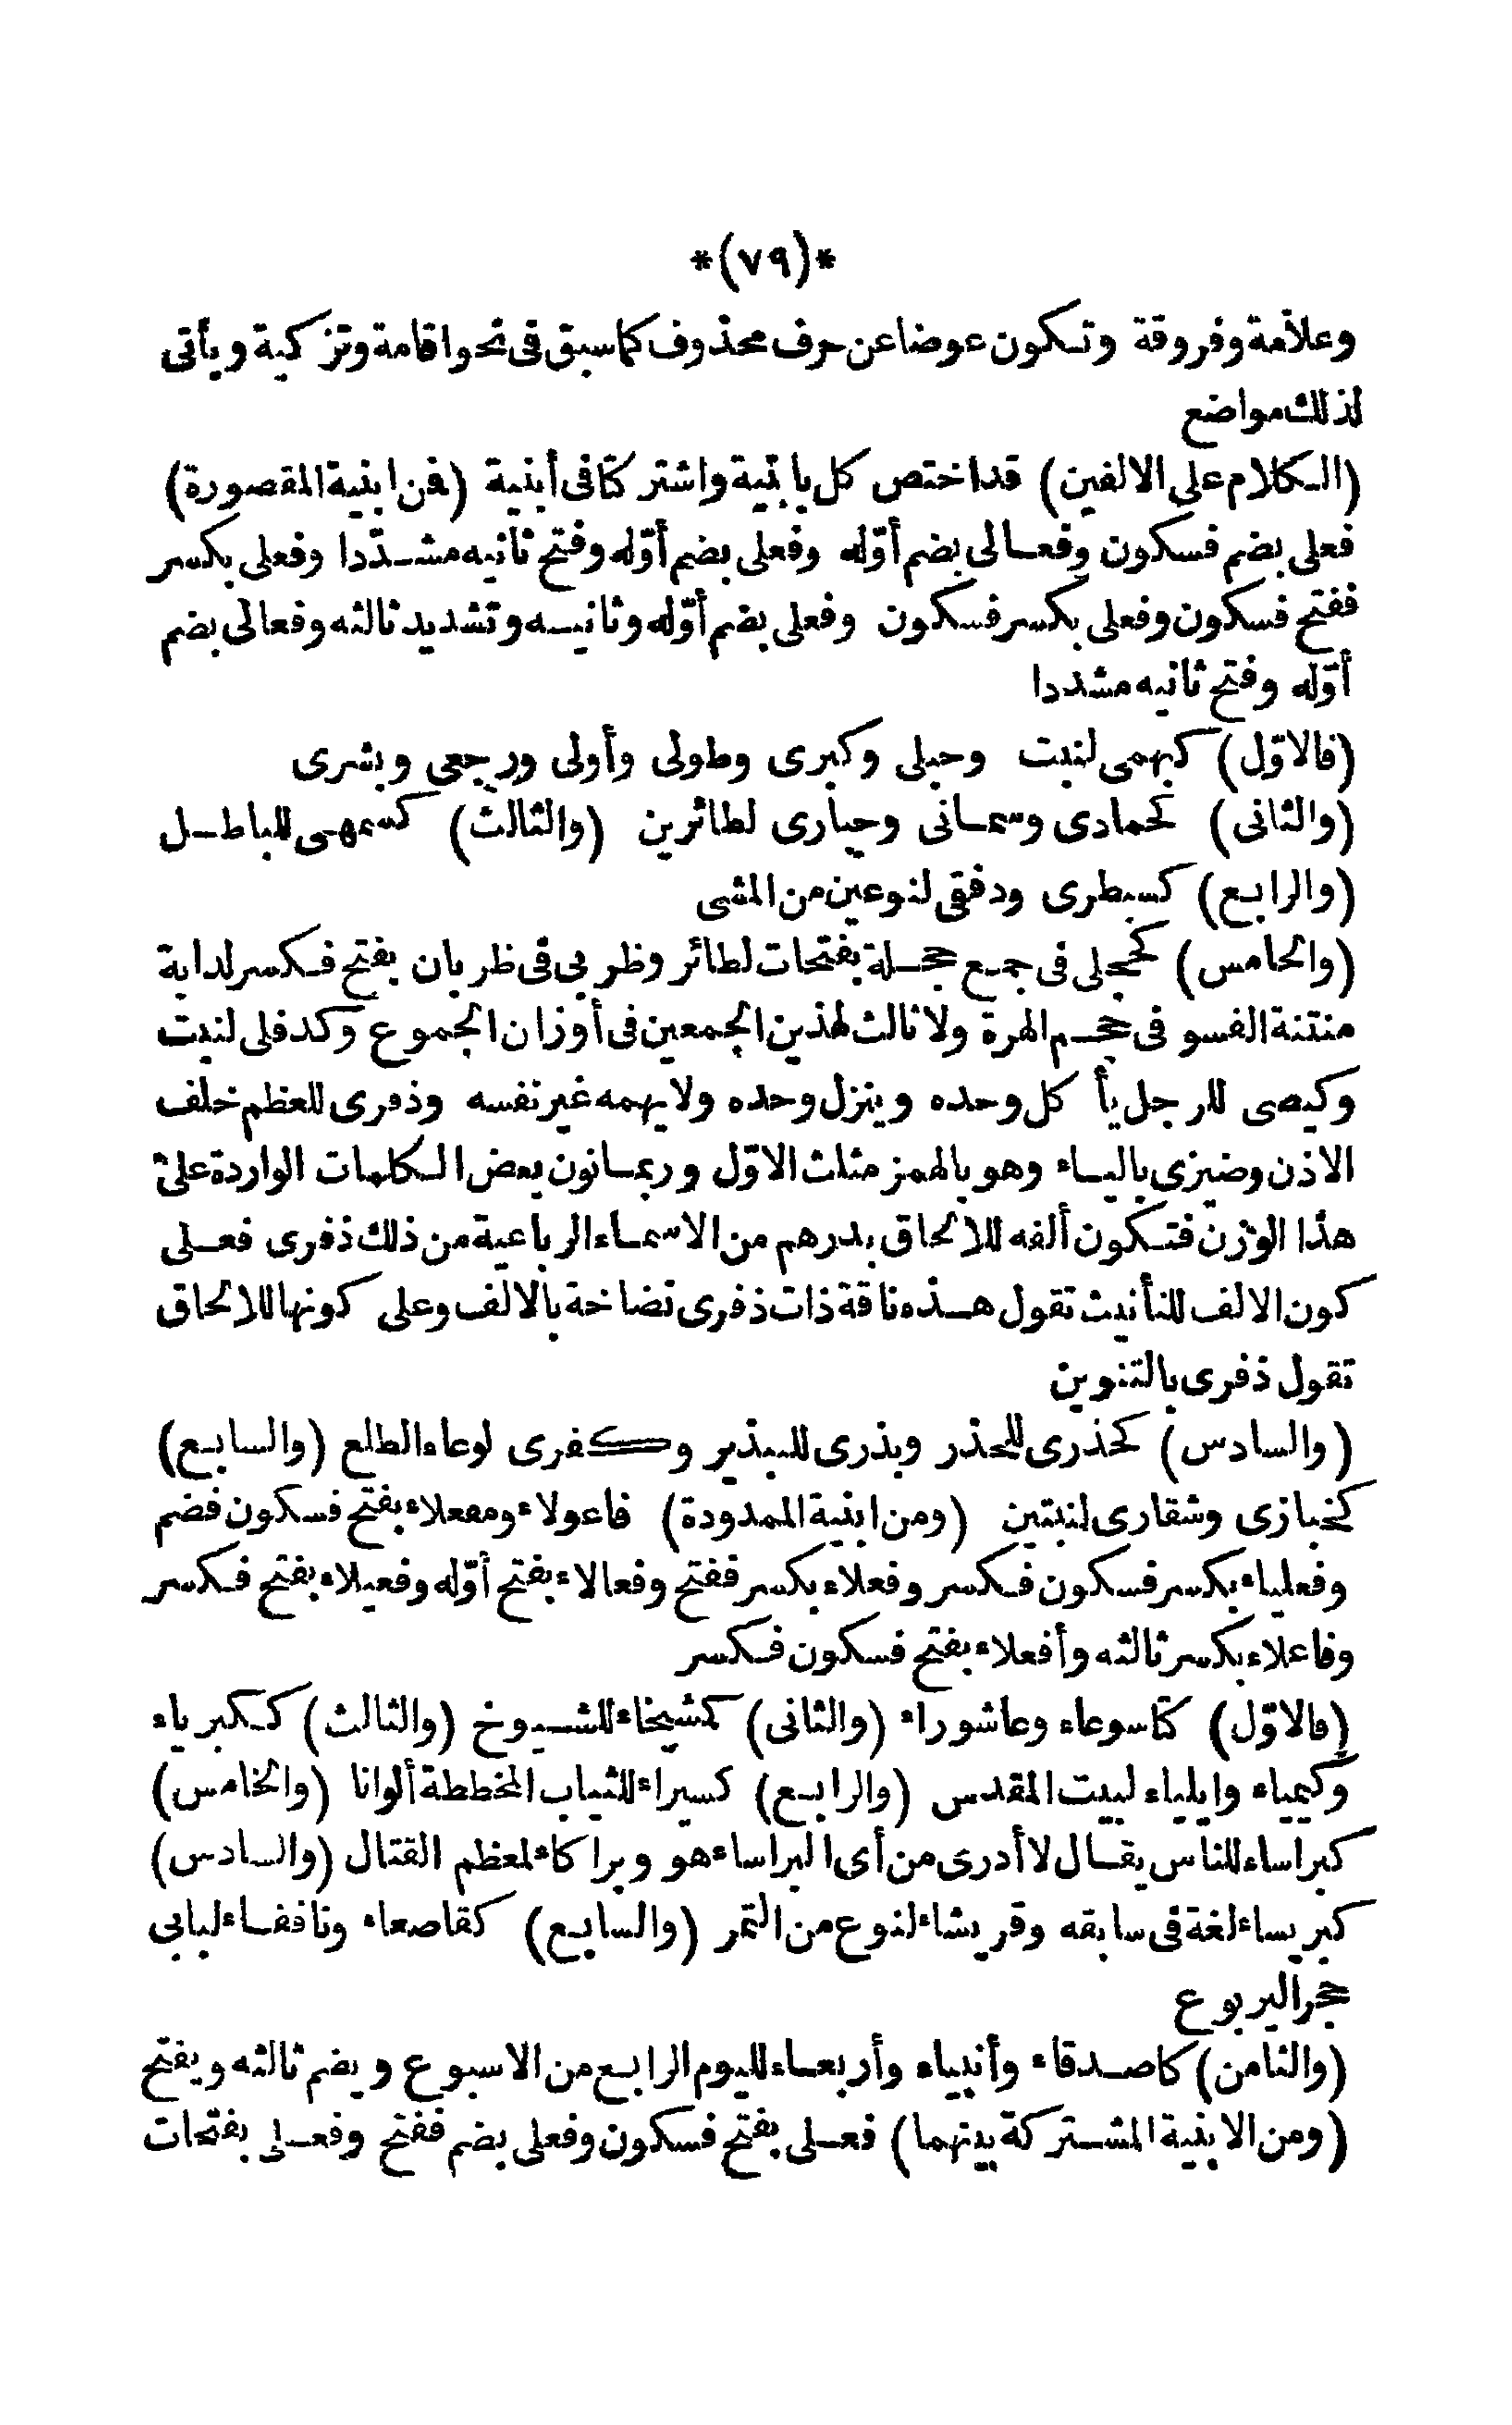 *(٧٩)*
وعلامة وفروقة وتكون عوضا عن حرف محذوف كما سبق فى نحو اقامة وتزكية ويأتى
لذلك مواضع
(الكلام على الالفين) قد اختص كل بابنية واشتركا فى أبنية (فمن ابنية المقصورة)
فعلى بضم فسكون وفعالى بضم أوّله وفعلى بضم أوّله وفتح ثانيه مشدّدا وفعلى بكسر
ففتح فسكون وفعلى بكسر فسكون وفعلى بضم أوّله وثانيه وتشديد ثالثه وفعالى بضم
أوّله وفتح ثانيه مشددا
(فالاوّل) كبهمى لنبت وحبلى وكبرى وطولى وأولى ورجعى وبشرى
(والثانى) كحمادى وسمانى وحبارى لطائرين (والثالث) كسمهى للباطل
(والرابع) كسبطرى ودفقى لنوعين من المشى
(والخامس) كحجلى فى جمع حجلة بفتحات لطائر وظربى فى ظربان بفتح فكسر لدابة
منتنة الفسو فى حجم الهرة ولا ثالث لهذين الجمعين فى أوزان الجموع وكدفلى لنبت
وكيصى للرجل يأكل وحده وينزل وحده ولا يهمه غير نفسه وذفرى للعظم خلف
الاذن وضيزى بالياء وهو بالهمز مثلث الاوّل وربما نون بعض الكلمات الواردة على
هذا الوزن فتكون ألفه للالحاق بدرهم من الاسماء الرباعية من ذلك ذفرى فعلى
كون الالف للتأنيث تقول هذه ناقة ذات ذفرى نضاخة بالالف وعلى كونها للالحاق
تقول ذفرى بالتنوين
(والسادس) كحذرى للحذر وبذرى للبذير وكفرى لوعاء الطلع (والسابع)
كخبازى وشقارى لنبتين (ومن ابنية الممدودة) فاعولاء ومفعلاء بفتح فسكون فضم
وفعلياء بكسر فسكون فكسر وفعلاء بكسر ففتح وفعالاء بفتح أوّله وفعيلاء بفتح فكسر
وفاعلاء بكسر ثالثه وأفعلاء بفتح فسكون فكسر
(فالاوّل) كتاسوعاء وعاشوراء (والثانى) كمشيخاء للشيوخ (والثالث) ككبرياء
وكيمياء وايلياء لبيت المقدس (والرابع) كسيراء للثياب المخططة ألوانا (والخامس)
كبراساء للناس يقال لا أدرى من أى البراساء هو وبراكاء لمعظم القتال (والسادس)
كبريساء لغة فى سابقه وقريشاء لنوع من التمر (والسابع) كقاصعاء ونافقاء لبابى
جحر اليربوع
(والثامن) كاصدقاء وأنبياء وأربعاء لليوم الرابع من الاسبوع ويضم ثالثه ويفتح
(ومن الابنية المشتركة بينهما) فعلى بفتح فسكون وفعلى بضم ففتح وفعلى بفتحات